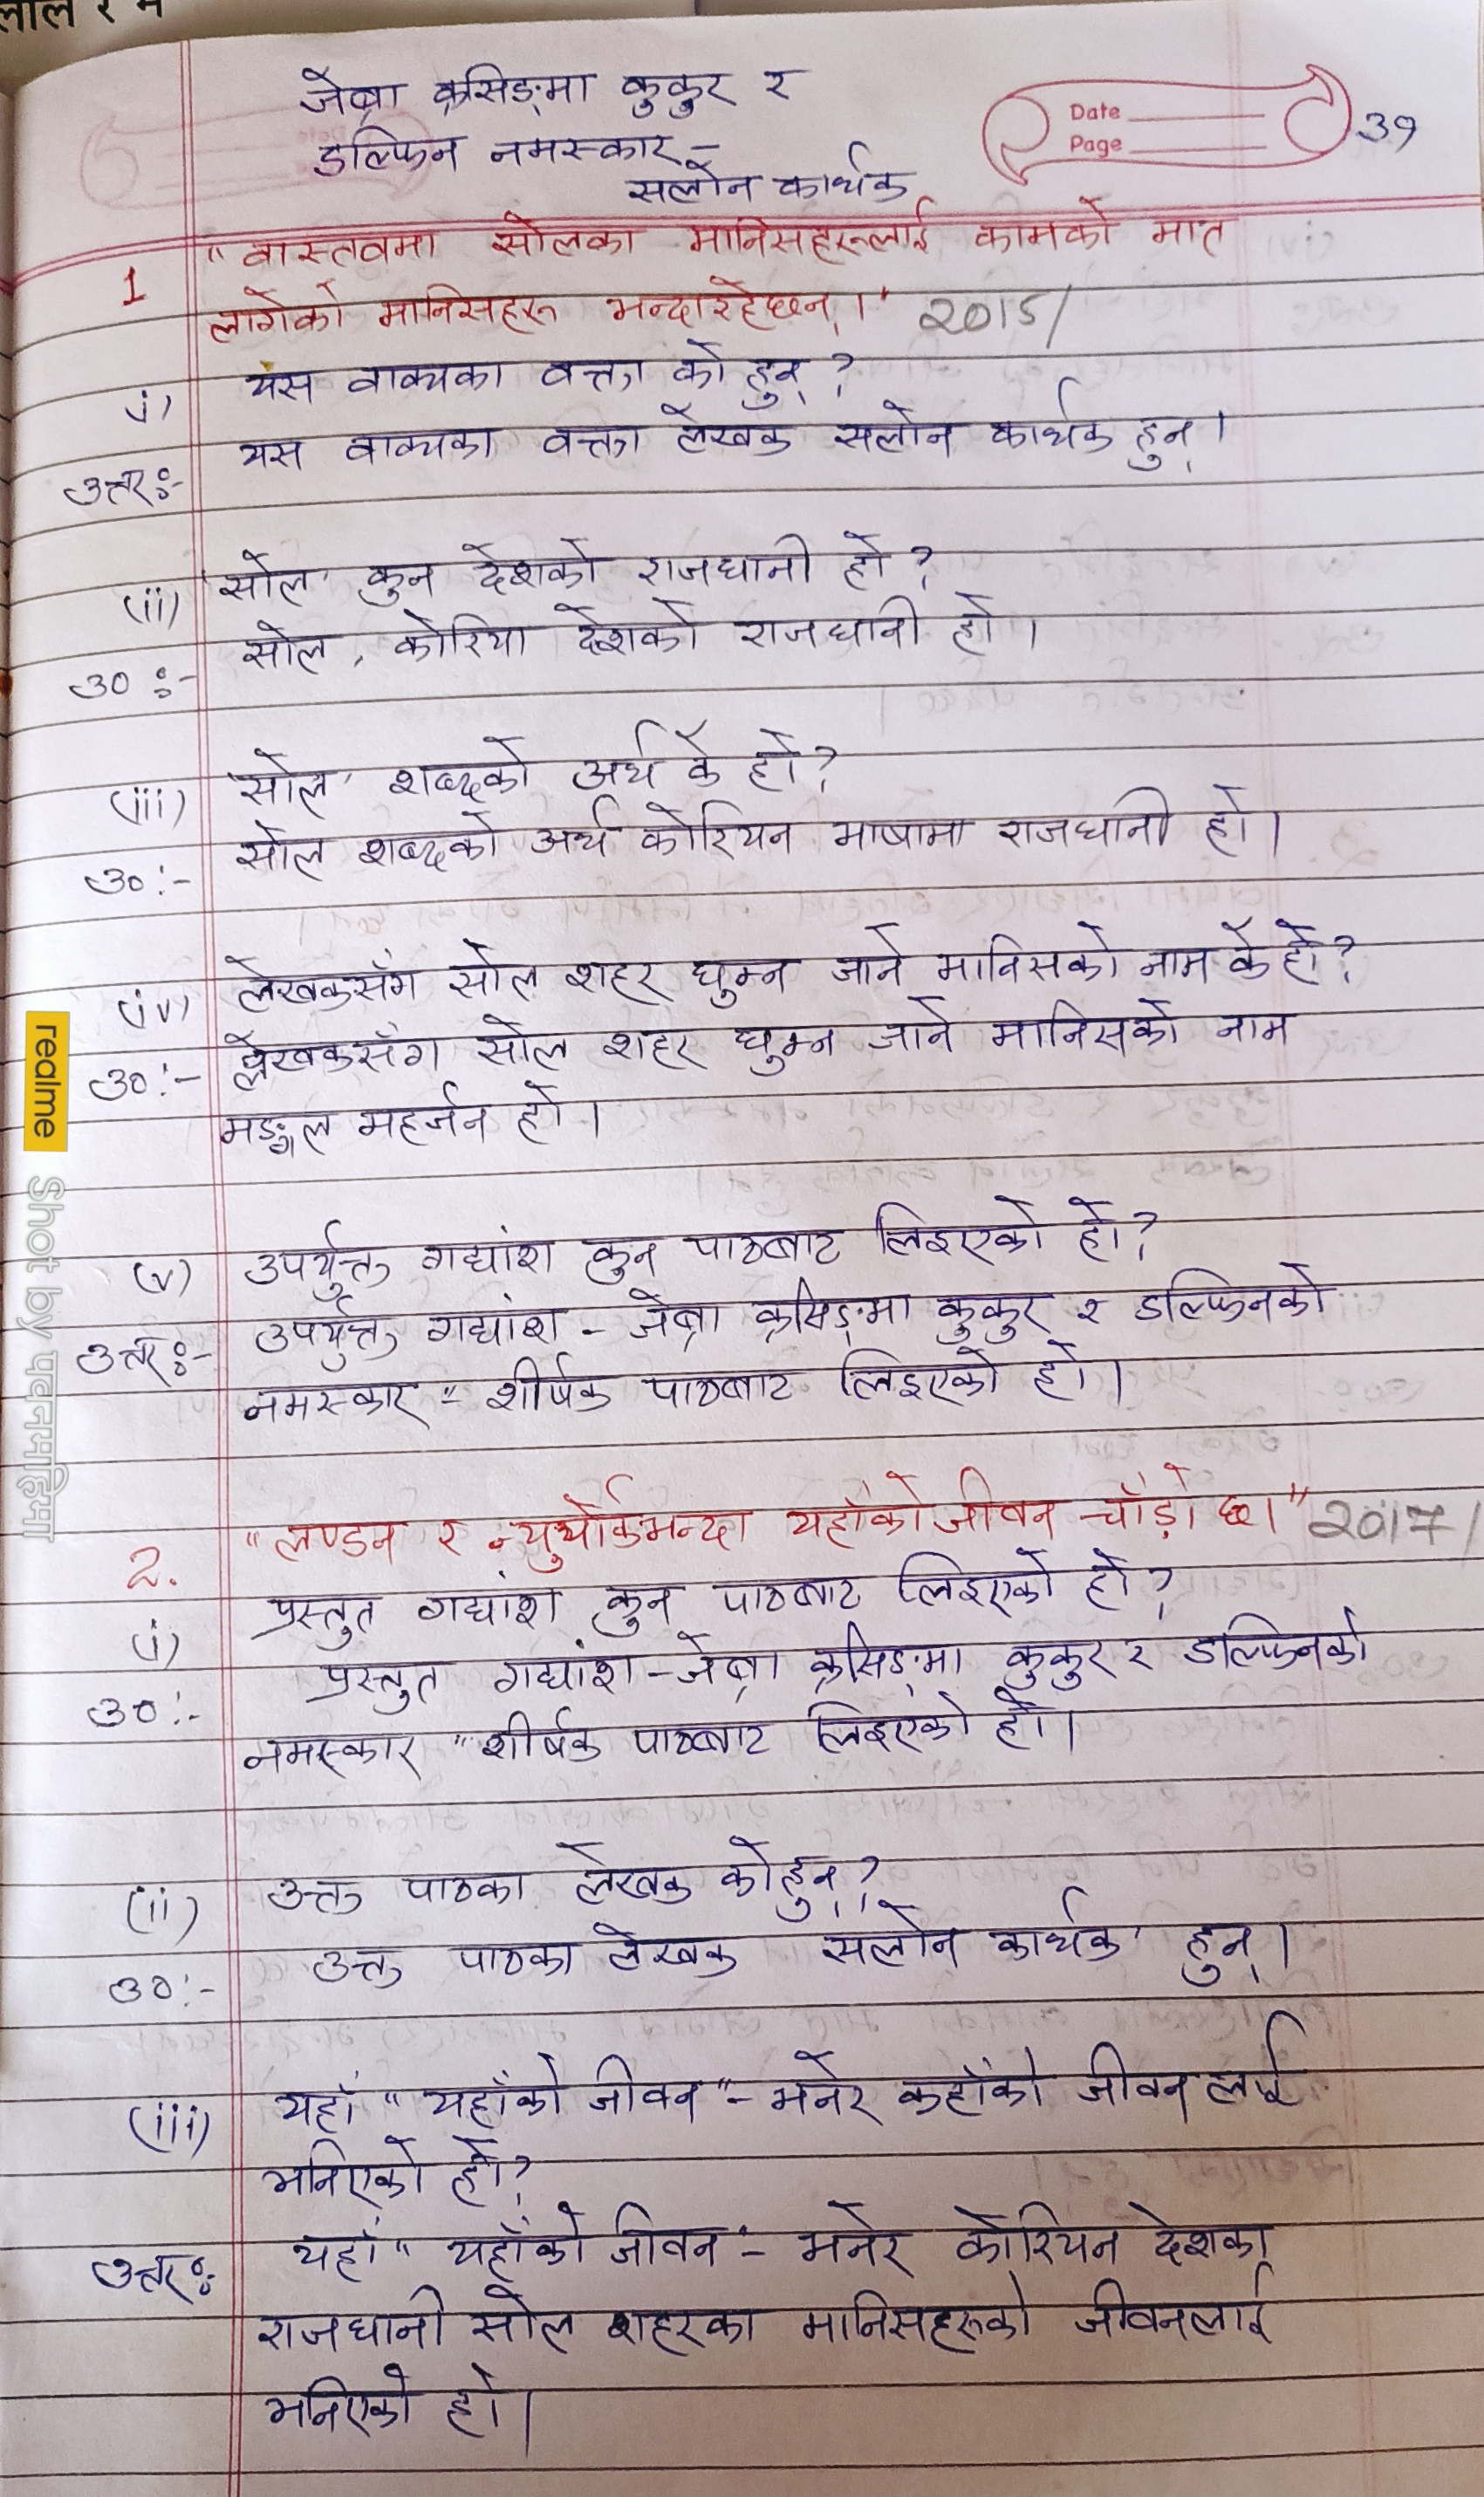 जेब्रा क्रसिङ्मा कुकुर र
डल्फिन नमस्कार -
सलोन कार्थक
Date
Page
39
1 "वास्तवमा सोलका मानिसहरूलाई कामको मात
लागेको मानिसहरू भन्दारहेछन् ।" 2015/
i) यस वाक्यका वक्ता को हुन् ?
उत्तर :- यस वाक्यका वक्ता लेखक सलोन कार्थक हुन् ।
(ii) 'सोल' कुन देशको राजधानी हो ?
उ० :- सोल, कोरिया देशको राजधानी हो ।
(iii) 'सोल' शब्दको अर्थ के हो ?
उ० :- सोल शब्दको अर्थ कोरियन भाषामा राजधानी हो ।
(iv) लेखकसँग सोल शहर घुम्न जाने मानिसको नाम के हो ?
उ० :- लेखकसँग सोल शहर घुम्न जाने मानिसको नाम
मङ्गल महर्जन हो ।
(v) उपर्युक्त गद्यांश कुन पाठबाट लिइएको हो ?
उत्तर :- उपर्युक्त गद्यांश - जेब्रा क्रसिङ्मा कुकुर र डल्फिनको
नमस्कार " शीर्षक पाठबाट लिइएको हो ।
2. "लण्डन र न्युयोर्कभन्दा यहाँको जीवन चाँड़ो छ ।" 2017/
(i) प्रस्तुत गद्यांश कुन पाठबाट लिइएको हो ?
उ० :- प्रस्तुत गद्यांश - जेब्रा क्रसिङ्मा कुकुर र डल्फिनको
नमस्कार "शीर्षक पाठबाट लिइएको हो ।
(ii) उक्त पाठका लेखक को हुन् ?
उ० :- उक्त पाठका लेखक 'सलोन कार्थक' हुन् ।
(iii) यहाँ "यहाँको जीवन" - भनेर कहाँको जीवन लाई
भनिएको हो ?
उत्तर :- यहाँ "यहाँको जीवन" - भनेर कोरियन देशका
राजधानी सोल शहरका मानिसहरूको जीवनलाई
भनिएको हो ।
realme Shot by पवनमाहिमा